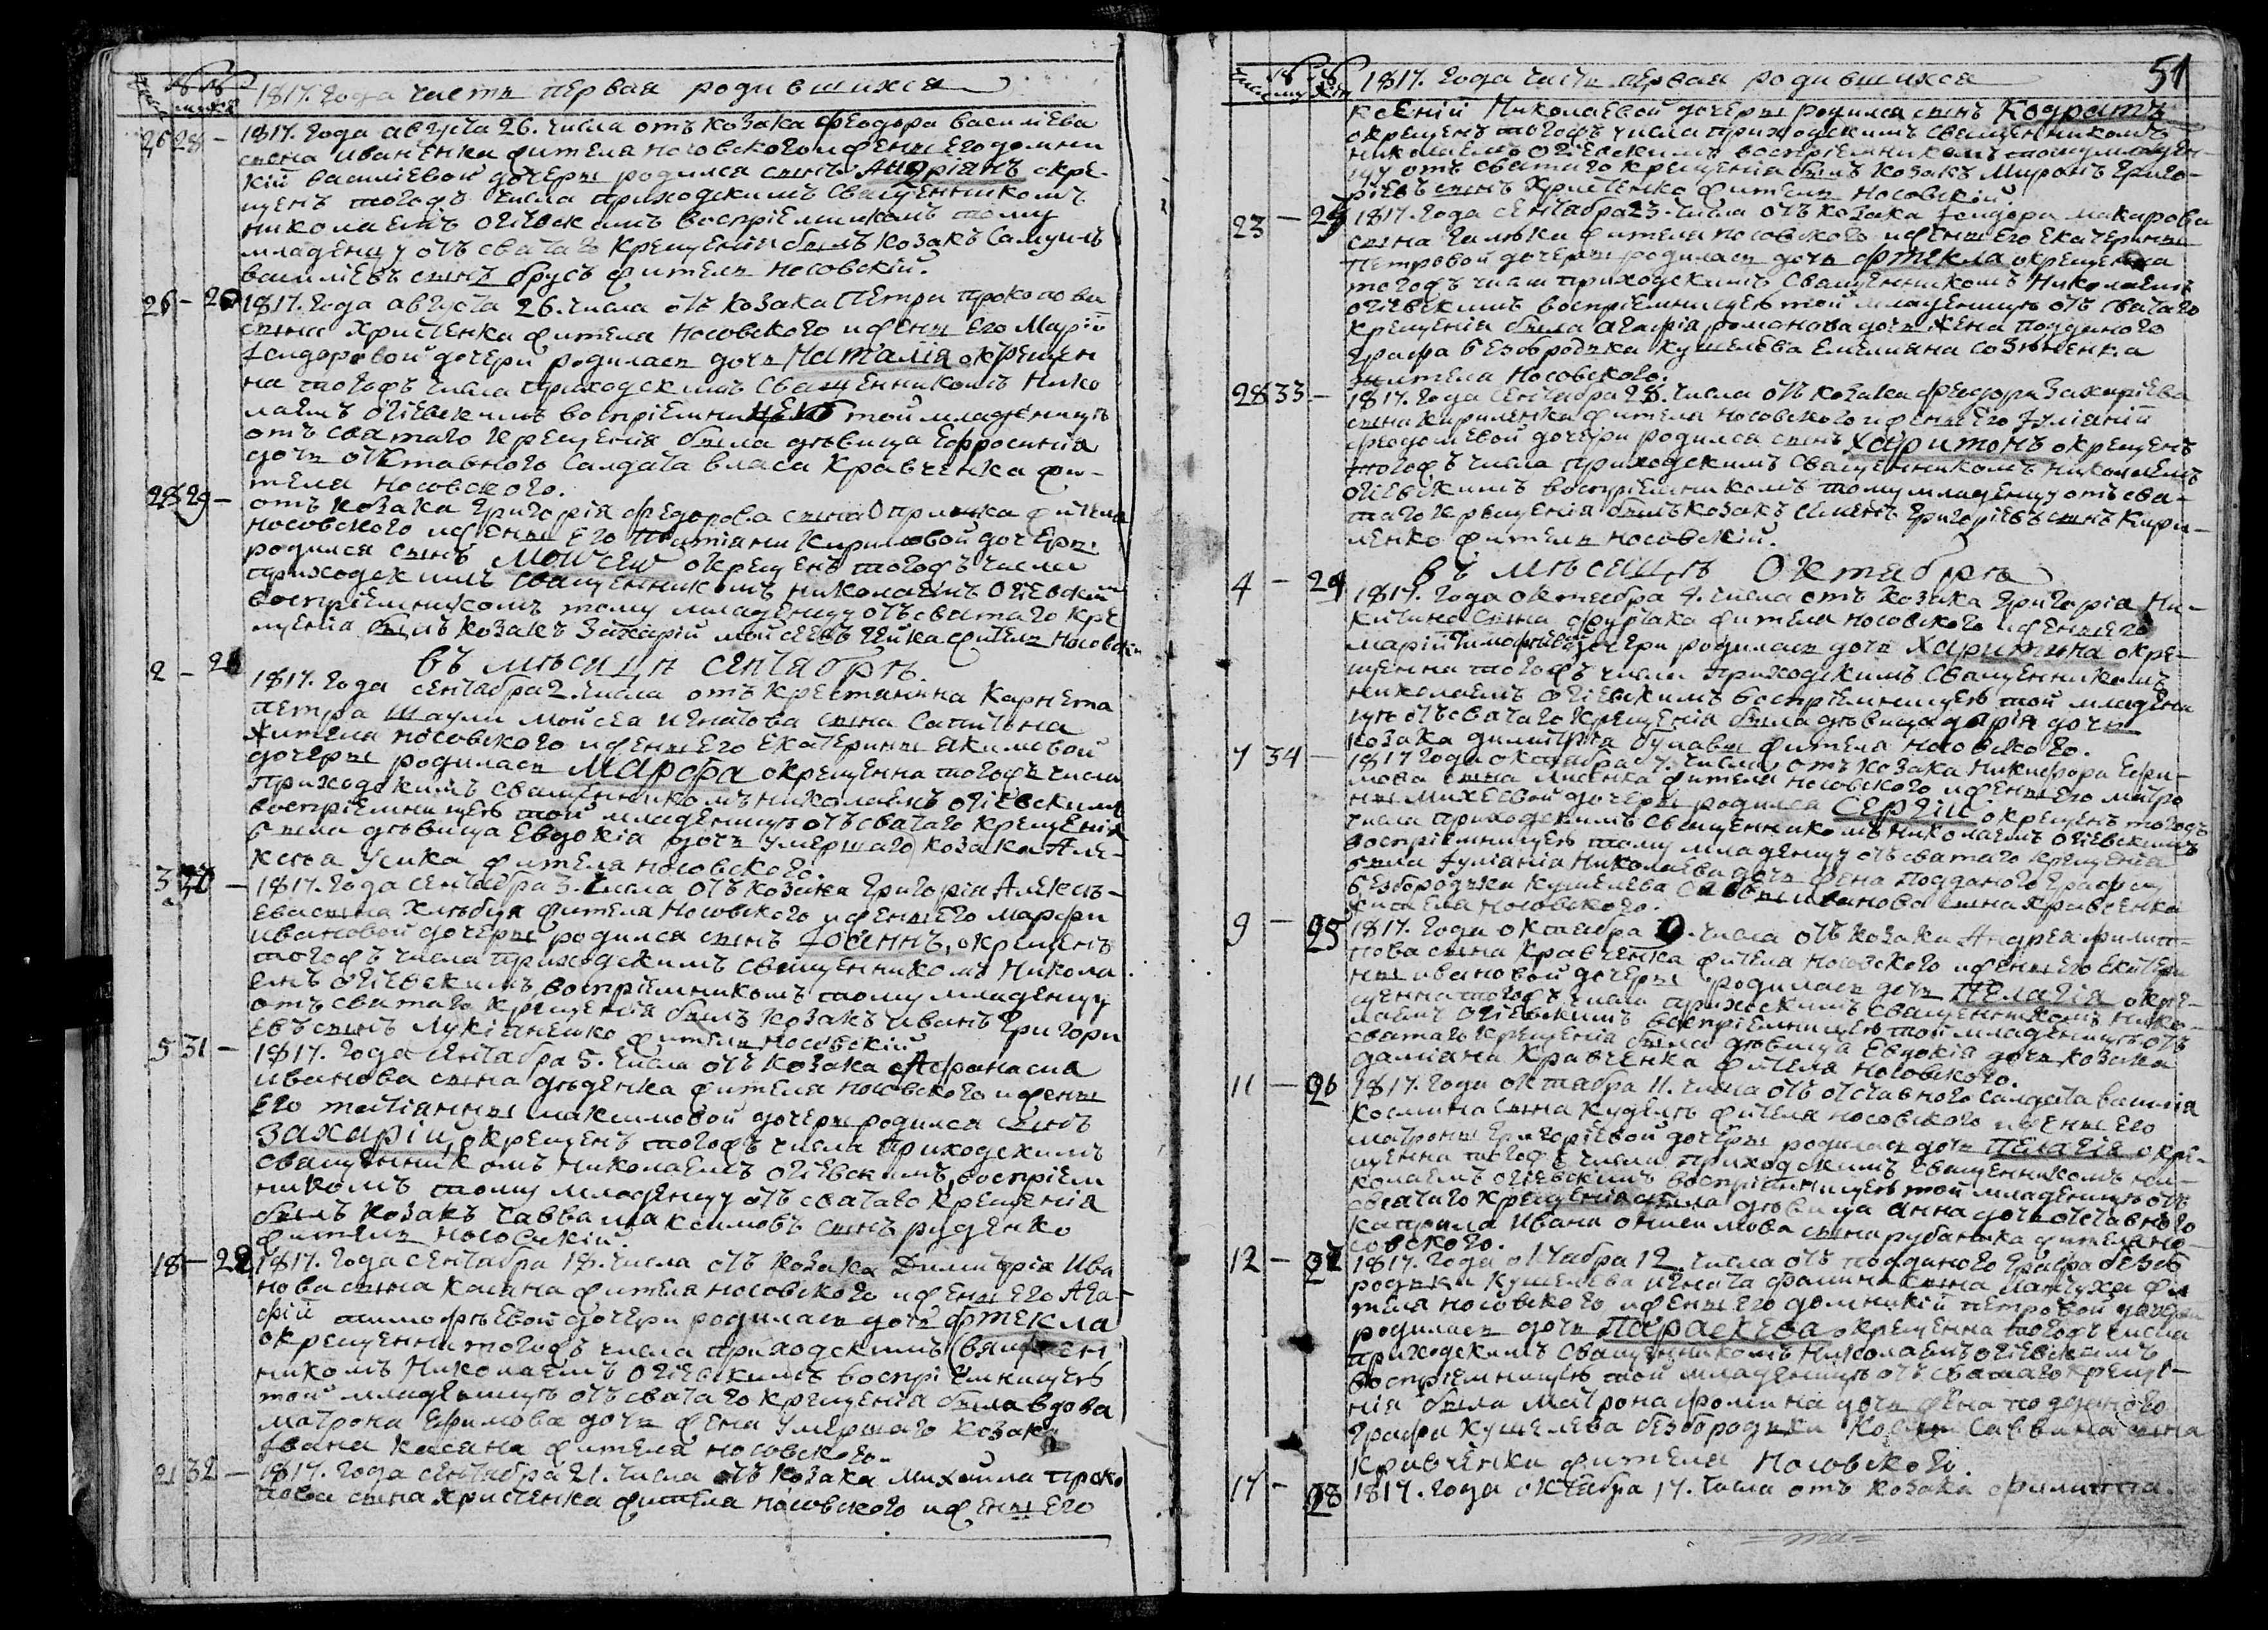 1817. года часть первая родившихся
26 28 – 1817. года августа 26. числа отъ козака Феодора василіева
сына иваненка жителя носовского и жены его домни
кій василіевой дочеры родился сынъ Андріанъ окре-
щенъ тогожъ числа приходскимъ священникомъ
николаемъ огіевскимъ воспріемникомъ тому
младенцу отъ святаго крещенія былъ козакъ Самуилъ
василіевъ сынъ брусъ житель носовскій.
26 – 20 1817. года августа 26. числа отъ козака Петра прокопова
сына Христенка жителя носовского и жены его Марій
Феодоровой дочери родилась дочь Наталія окрещен
на тогожъ числа приходскимъ священникомъ Нико
лаемъ огіевскимъ воспріемницею той младенице
отъ святаго крещенія была девица Ефросинія
дочь отставного Салдата власа Кравченка жи-
теля носовского.
28 29 – отъ козака Григорія федорова сына Опришка жителя
носовского и жены его Татіяни Кириловой дочеры
родился сынъ Моѵсей окрещенъ тогожъ числа
приходскимъ священникомъ николаемъ огіевскимъ
воспріемникомъ тому младенцу отъ святаго кре
щенія былъ козакъ Захарій мойсеевъ гейка житель носовски
въ месяце сентябре.
2 – 21 1817. года сентября 2. числа отъ крестянина Карнета
петра Шаули Мойсея игнатова сына
жителя носовского и жены его Екатерины якимовой
дочеры родилась Марѳа окрещенна тогожъ числа
приходскимъ священникомъ николаемъ огіевскимъ
воспріемницею той младенице отъ святаго крещенія
была девица Евдокія дочь умершаго козака Але-
ксея Усика жителя носовского.
3 30 – 1817. года сентября 3. числа отъ козака Григорія Алексе-
ева сына Хлебця жителя носовского и жены его марфи
ивановой дочеры родился сынъ Іоаннъ, окрещенъ
тогожъ числа приходскимъ священникомъ Никола
емъ огіевскимъ, воспріемникомъ тому младенцу
отъ святаго крещенія былъ козакъ иванъ Григори
евъ сынъ Лукіяненко житель носовскій
5 31 – 1817. года сентября 5. числа отъ козака Афанасия
иванова сына деденка жителя носовского и жены
его татіянны максимовой дочеры родился сынъ
Захарій, окрещенъ тогожъ числа приходскимъ
священникомъ николаемъ огіевскимъ, воспріем
никомъ тому младенцу отъ святаго крещенія
былъ козакъ Савва максимовъ сынъ руденко
житель носовскій.
18 – 22 1817. года сентября 18. числа отъ козака Димитрія Ива
нова сына касяна жителя носовского и жены его Ага-
фій тимофеевой дочери родилась дочь Фтекла
окрещенна тогожъ числа приходскимъ священ
никомъ Николаемъ огіевскимъ воспріемницею
той младенице отъ святаго крещенія была вдова
матрона Ефимова дочь жена умершаго козака
Ивана касяна жителя носовского.
21 32 – 1817. года сентября 21. числа отъ козака михаила проко
пова сына христенка жителя носовского и жены его
51
1817. года часть первая родившихся
ксеній Николаевой дочеры родился сынъ Кодратъ
окрещенъ тогожъ числа приходскимъ священникомъ
николаемъ огіевскимъ воспріемникомъ тому младен-
цу отъ святаго крещенія былъ козакъ Миронъ Григо-
ріевъ сынъ Христенко житель носовскій.
23 – 23 1817. года сентября 23. числа отъ козака Феодора макарова
сына жителя носовского и жены его Екатерины
Петровой дочеры родилась дочь Фтекла окрещенна
тогожъ числа приходскимъ священникомъ Николаемъ
огіевскимъ воспріемницею той младенице отъ святаго
крещенія была агафія романова дочь жена подданого
графа безбородька кушелева Емелияна созоненка
жителя носовского.
28 33 – 1817. года сентября 28. числа отъ козака Феодора Захаріева
сына кириленка жителя носовского и жены его Іуліяній
феодосіевой дочери родился сынъ Харитонъ окрещенъ
тогожъ числа приходскимъ священникомъ николаемъ
огіевскимъ воспріемникомъ тому младенцу отъ свя-
таго крещенія былъ козакъ Симеонъ Григоріевъ сынъ Кири-
ленко житель носовскій.
въ месяце Октябре
4 – 24 1817. года октября 4. числа отъ козака Григорія Ни-
китина сына жителя носовского и жены его
маріи тимофеевой дочери родилась дочь Харитина окре-
щенна тогожъ числа приходскимъ священникомъ
николаемъ огіевскимъ воспріемницею той младени
це отъ святаго крещенія была девица дарія дочь
козака димитрія булавы жителя носовского.
7 34 – 1817 года октября 7. числа отъ козака Никифора Ефи-
мова сына Лисенка жителя носовского и жены его матро
ны Михеевой дочеры родился Сергій окрещенъ тогожъ
числа приходскимъ священникомъ николаемъ огіевскимъ
воспріемницею тому младенцу отъ святаго крещенія
была Іуліанія Николаева дочь жена подданого графа
безбородька кушелева Саввы иванова сына кравченка
жителя носовского.
9 – 25 1817. года октября 9. числа отъ козака Андрея филип-
пова сына Кравченка жителя носовского и жены его Екатери
ны ивановой дочеры родилась дочь Пелагія окре-
щенна тогожъ числа приходскимъ священникомъ нико-
лаемъ огіевскимъ воспріемницею той младенице отъ
святаго крещенія была девица Евдокія дочь козака
даміана Кравченка жителя носовского.
11 – 26 1817. года октября 11. числа отъ отставного салдата василія
космина сына жителя носовского и жены его
матроны Григоріевой дочеры родилась дочь Пелагія окре-
щенна тогожъ числа приходскимъ священникомъ ни-
колаемъ огіевскимъ воспріемницею той младенице отъ
святаго крещенія была девица Анна дочь отставного
капрала Ивана онисимова сына рубанька жителя но-
совского.
12 – 27 1817. года октября 12. числа отъ подданого графа безбо
родька кушелева игната фомина сына жи
теля носовского и жены его домникій петровой дочери
родилась дочь Параскева окрещенна тогожъ числа
приходскимъ священникомъ Николаемъ огіевскимъ
воспріемницею той младенице отъ святаго креще-
нія была Матрона фомина дочь жена подданого
графа Кушелева безбородька Саввина сына
кравченка жителя носовского.
17 – 28 1817. года октября 17. числа отъ козака филиппа